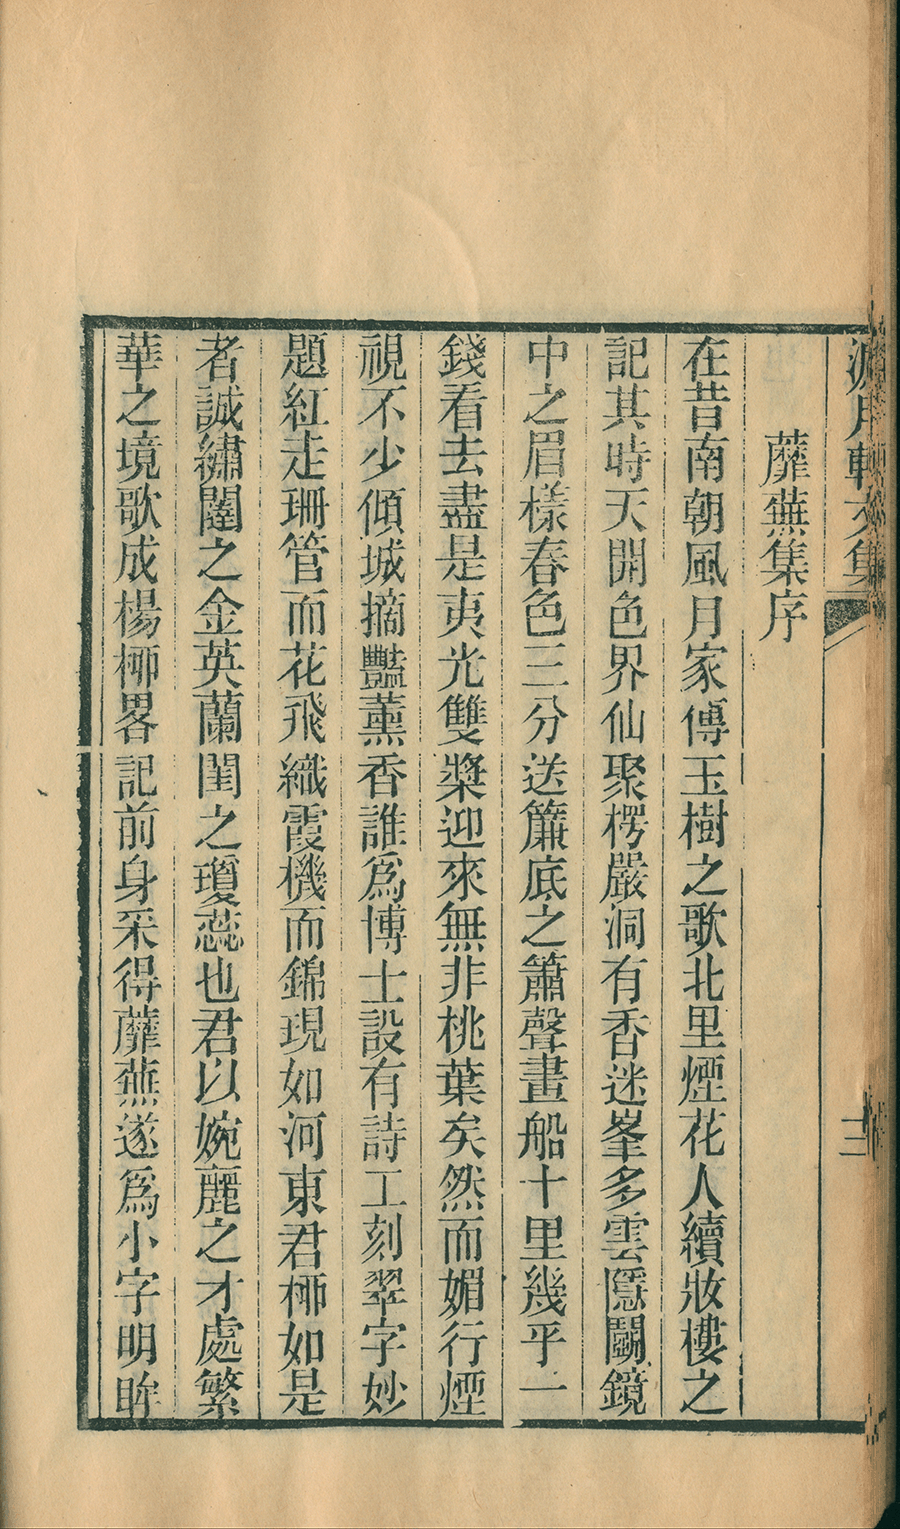 蘼蕪集序
在昔南朝風月家傳玉樹之歌北里煙花人續妝樓之
記其時天開色界仙聚楞嚴洞有香迷峯多雲隱鬭鏡
中之眉樣春色三分送簾底之簫聲畫船十里幾乎一
錢看去盡是夷光雙槳迎來無非桃葉矣然而媚行煙
視不少傾城摘豔薰香誰爲博士設有詩工刻翠字妙
題紅走珊管而花飛織霞機而錦現如河東君桺如是
者誠繡闥之金英蘭閨之瓊蕊也君以婉麗之才處繁
華之境歌成楊桺畧記前身采得蘼蕪遂爲小字明眸